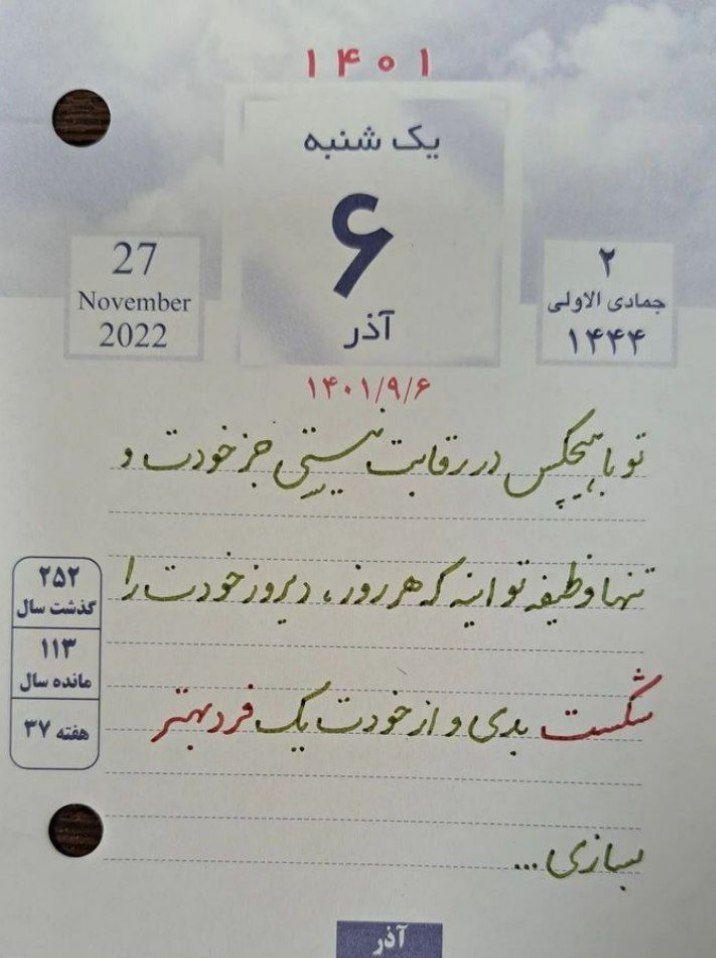 ۱۴۰۱
یک شنبه
۶
آذر
27
November
2022
۲
جمادی الاولی
۱۴۴۴
۱۴۰۱/۹/۶
تو با هیچکس در رقابت نیستی جز خودت و
تنها وظیفه تو اینه که هر روز، دیروز خودت را
شکست بدی و از خودت یک فرد بهتر
بسازی...
۲۵۲
گذشت سال
۱۱۳
مانده سال
هفته ۳۷
آذر